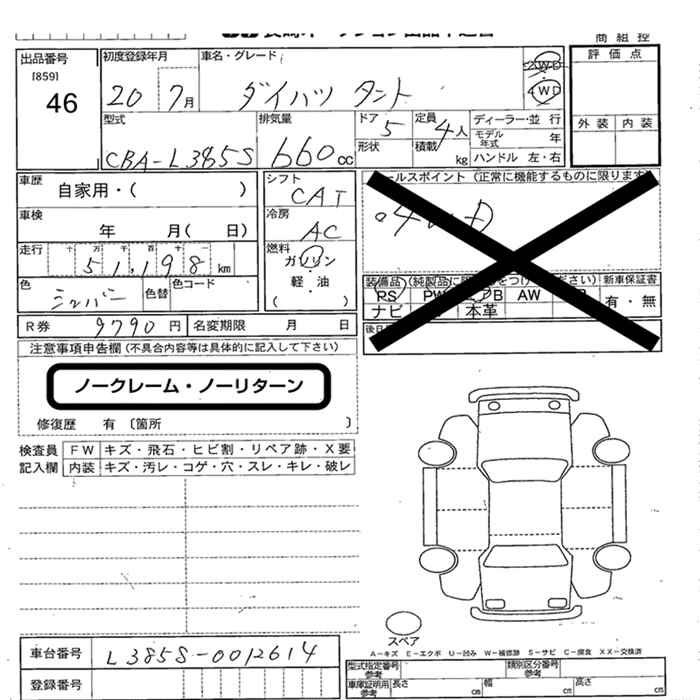 商組控
出品番号 初度登録年月 車名・グレード 2WD 評価点
[859] 4WD
46 20 7月 ダイハツ タント
型式 排気量 ドア 5 定員 4人 ディーラー・並行 外装 内装
CBA-L385S 660cc 形状 積載 kg モデル年式 年
ハンドル 左・右
車歴 シフト セールスポイント (正常に機能するものに限ります)
自家用・( ) CAT
車検 冷房 4WD
年 月( 日) AC
走行 十 万 千 百 十 一 燃料
51,198 km ガソリン 装備品
色 シルバー 色替 色コード 軽・油 PS PW AW 新車保証書
( ) ナビ 本革 有・無
R券 9790円 名変期限 月 日
注意事項申告欄 (不具合内容等は具体的に記入して下さい)
ノークレーム・ノーリターン
修復歴 有 〔箇所 〕
検査員 FW キズ・飛石・ヒビ割・リペア跡・X要
記入欄 内装 キズ・汚レ・コゲ・穴・スレ・キレ・破レ
スペア
A-キズ E-エクボ U-凹み W-補修跡 S-サビ C-腐食 XX-交換済
車台番号 L385S-0012614 型式指定番号参考 類別区分番号参考
登録番号 車庫証明用参考 長さ cm 幅 cm 高さ cm